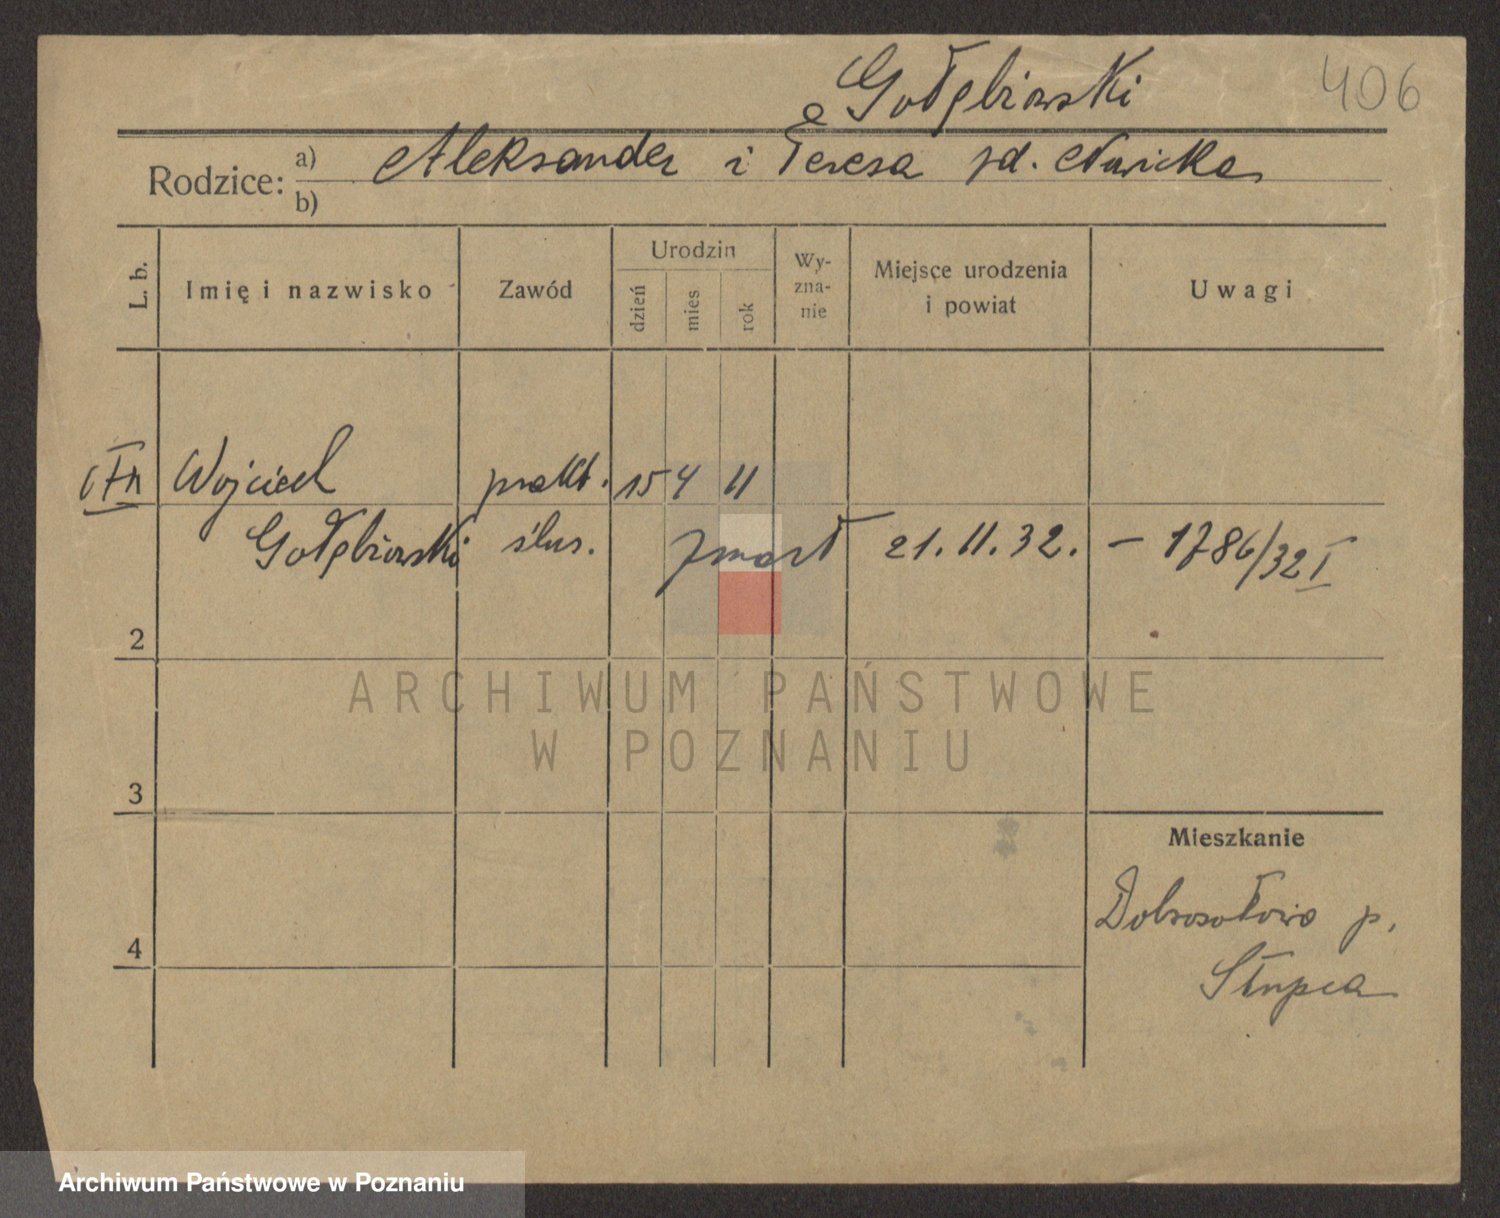 Gołębiowski
406
Rodzice:
a) Aleksander i Teresa zd. Nawicka
b)
L. b.
Imię i nazwisko
Zawód
Urodzin
dzień
mies
rok
Wy-
zna-
nie
Miejsce urodzenia
i powiat
Uwagi
Wojciech prakt. 15 4 11
Gołębiowski ślus. zmarł 21.11.32. – 1786/32 I
2
3
4
Mieszkanie
Dobrosołowo p.
Słupca
ARCHIWUM PAŃSTWOWE
W POZNANIU
Archiwum Państwowe w Poznaniu